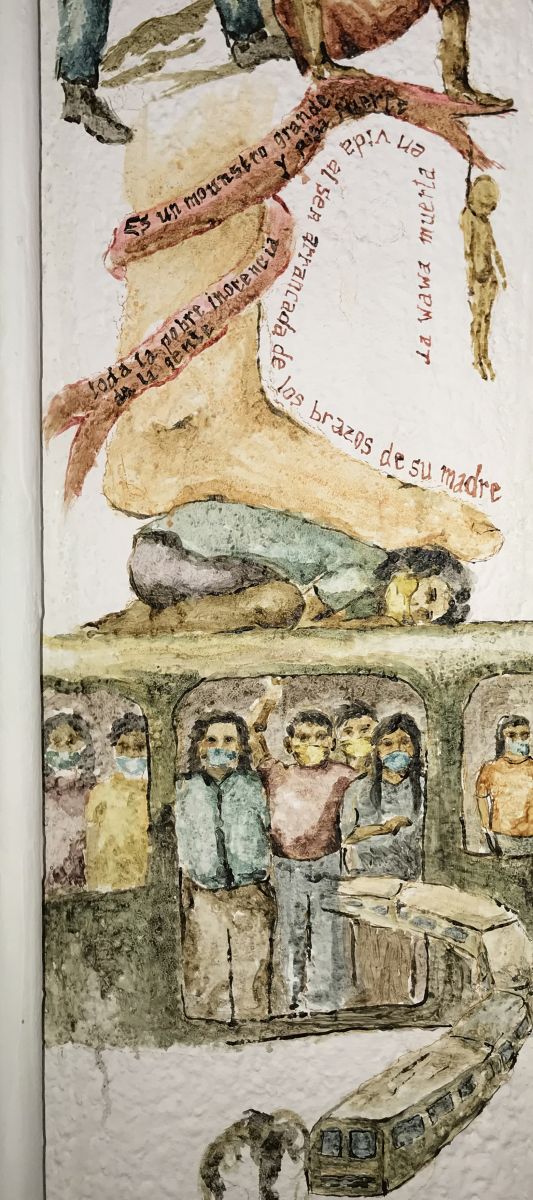 Es un mounstro grande
y pisa fuerte
toda la pobre inocencia
de la gente
La wawa muerta en vida al ser arrancada de los brazos de su madre